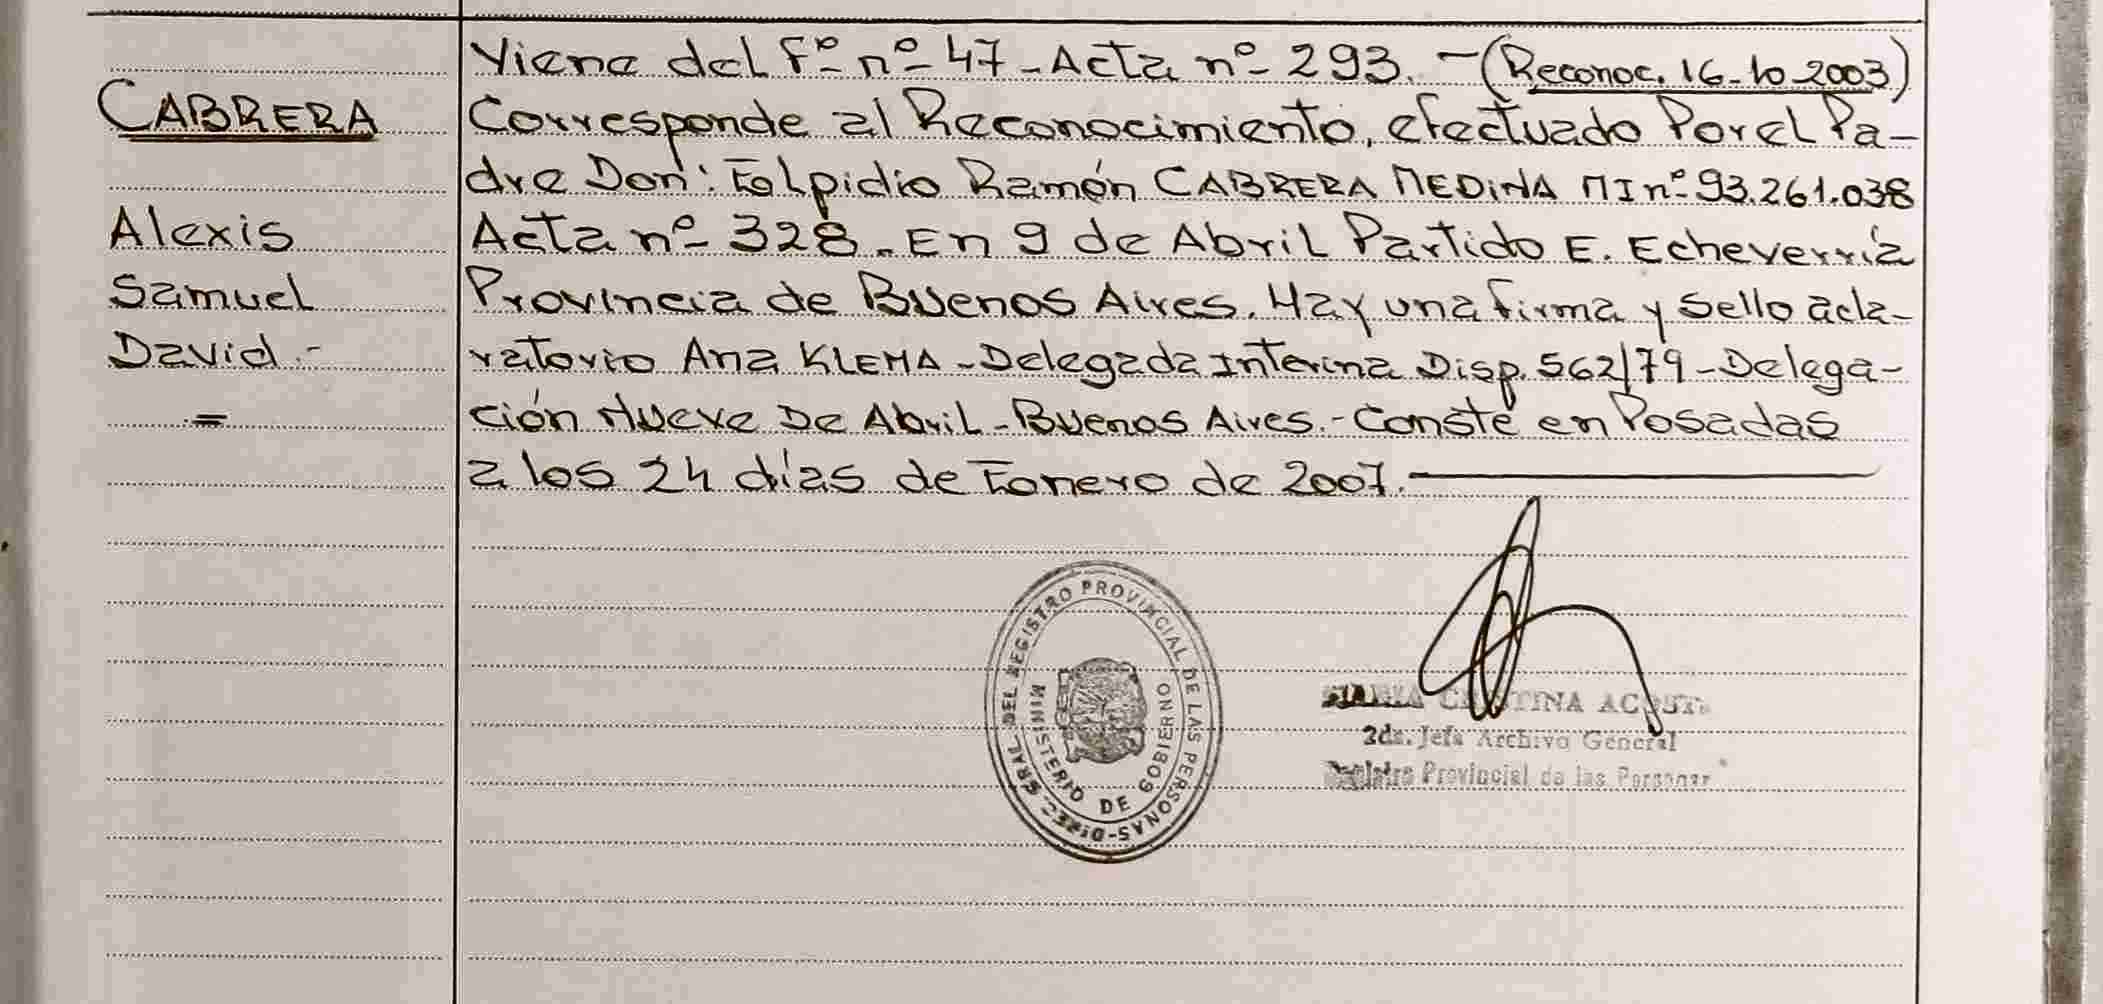 CABRERA
Alexis
Samuel
David.-
=
Viene del Fº nº 47 - Acta nº 293. - (Reconoc. 16-10-2003)
Corresponde al Reconocimiento, efectuado Por el Pa-
dre Don: Elpidio Ramón CABRERA MEDINA MI nº 93.261.038
Acta nº 328. En 9 de Abril Partido E. Echeverría
Provincia de Buenos Aires. Hay una firma y sello acla-
ratorio Ana KLEMA - Delegada Interina Disp. 562/79 - Delega-
ción Nueve De Abril - Buenos Aires.- Conste en Posadas
a los 24 días de Enero de 2007.
DIREC. GRAL. DEL REGISTRO PROVINCIAL DE LAS PERSONAS-
MINISTERIO DE GOBIERNO
MARIA CRISTINA ACOSTA
2da. Jefa Archivo General
Registro Provincial de las Personas